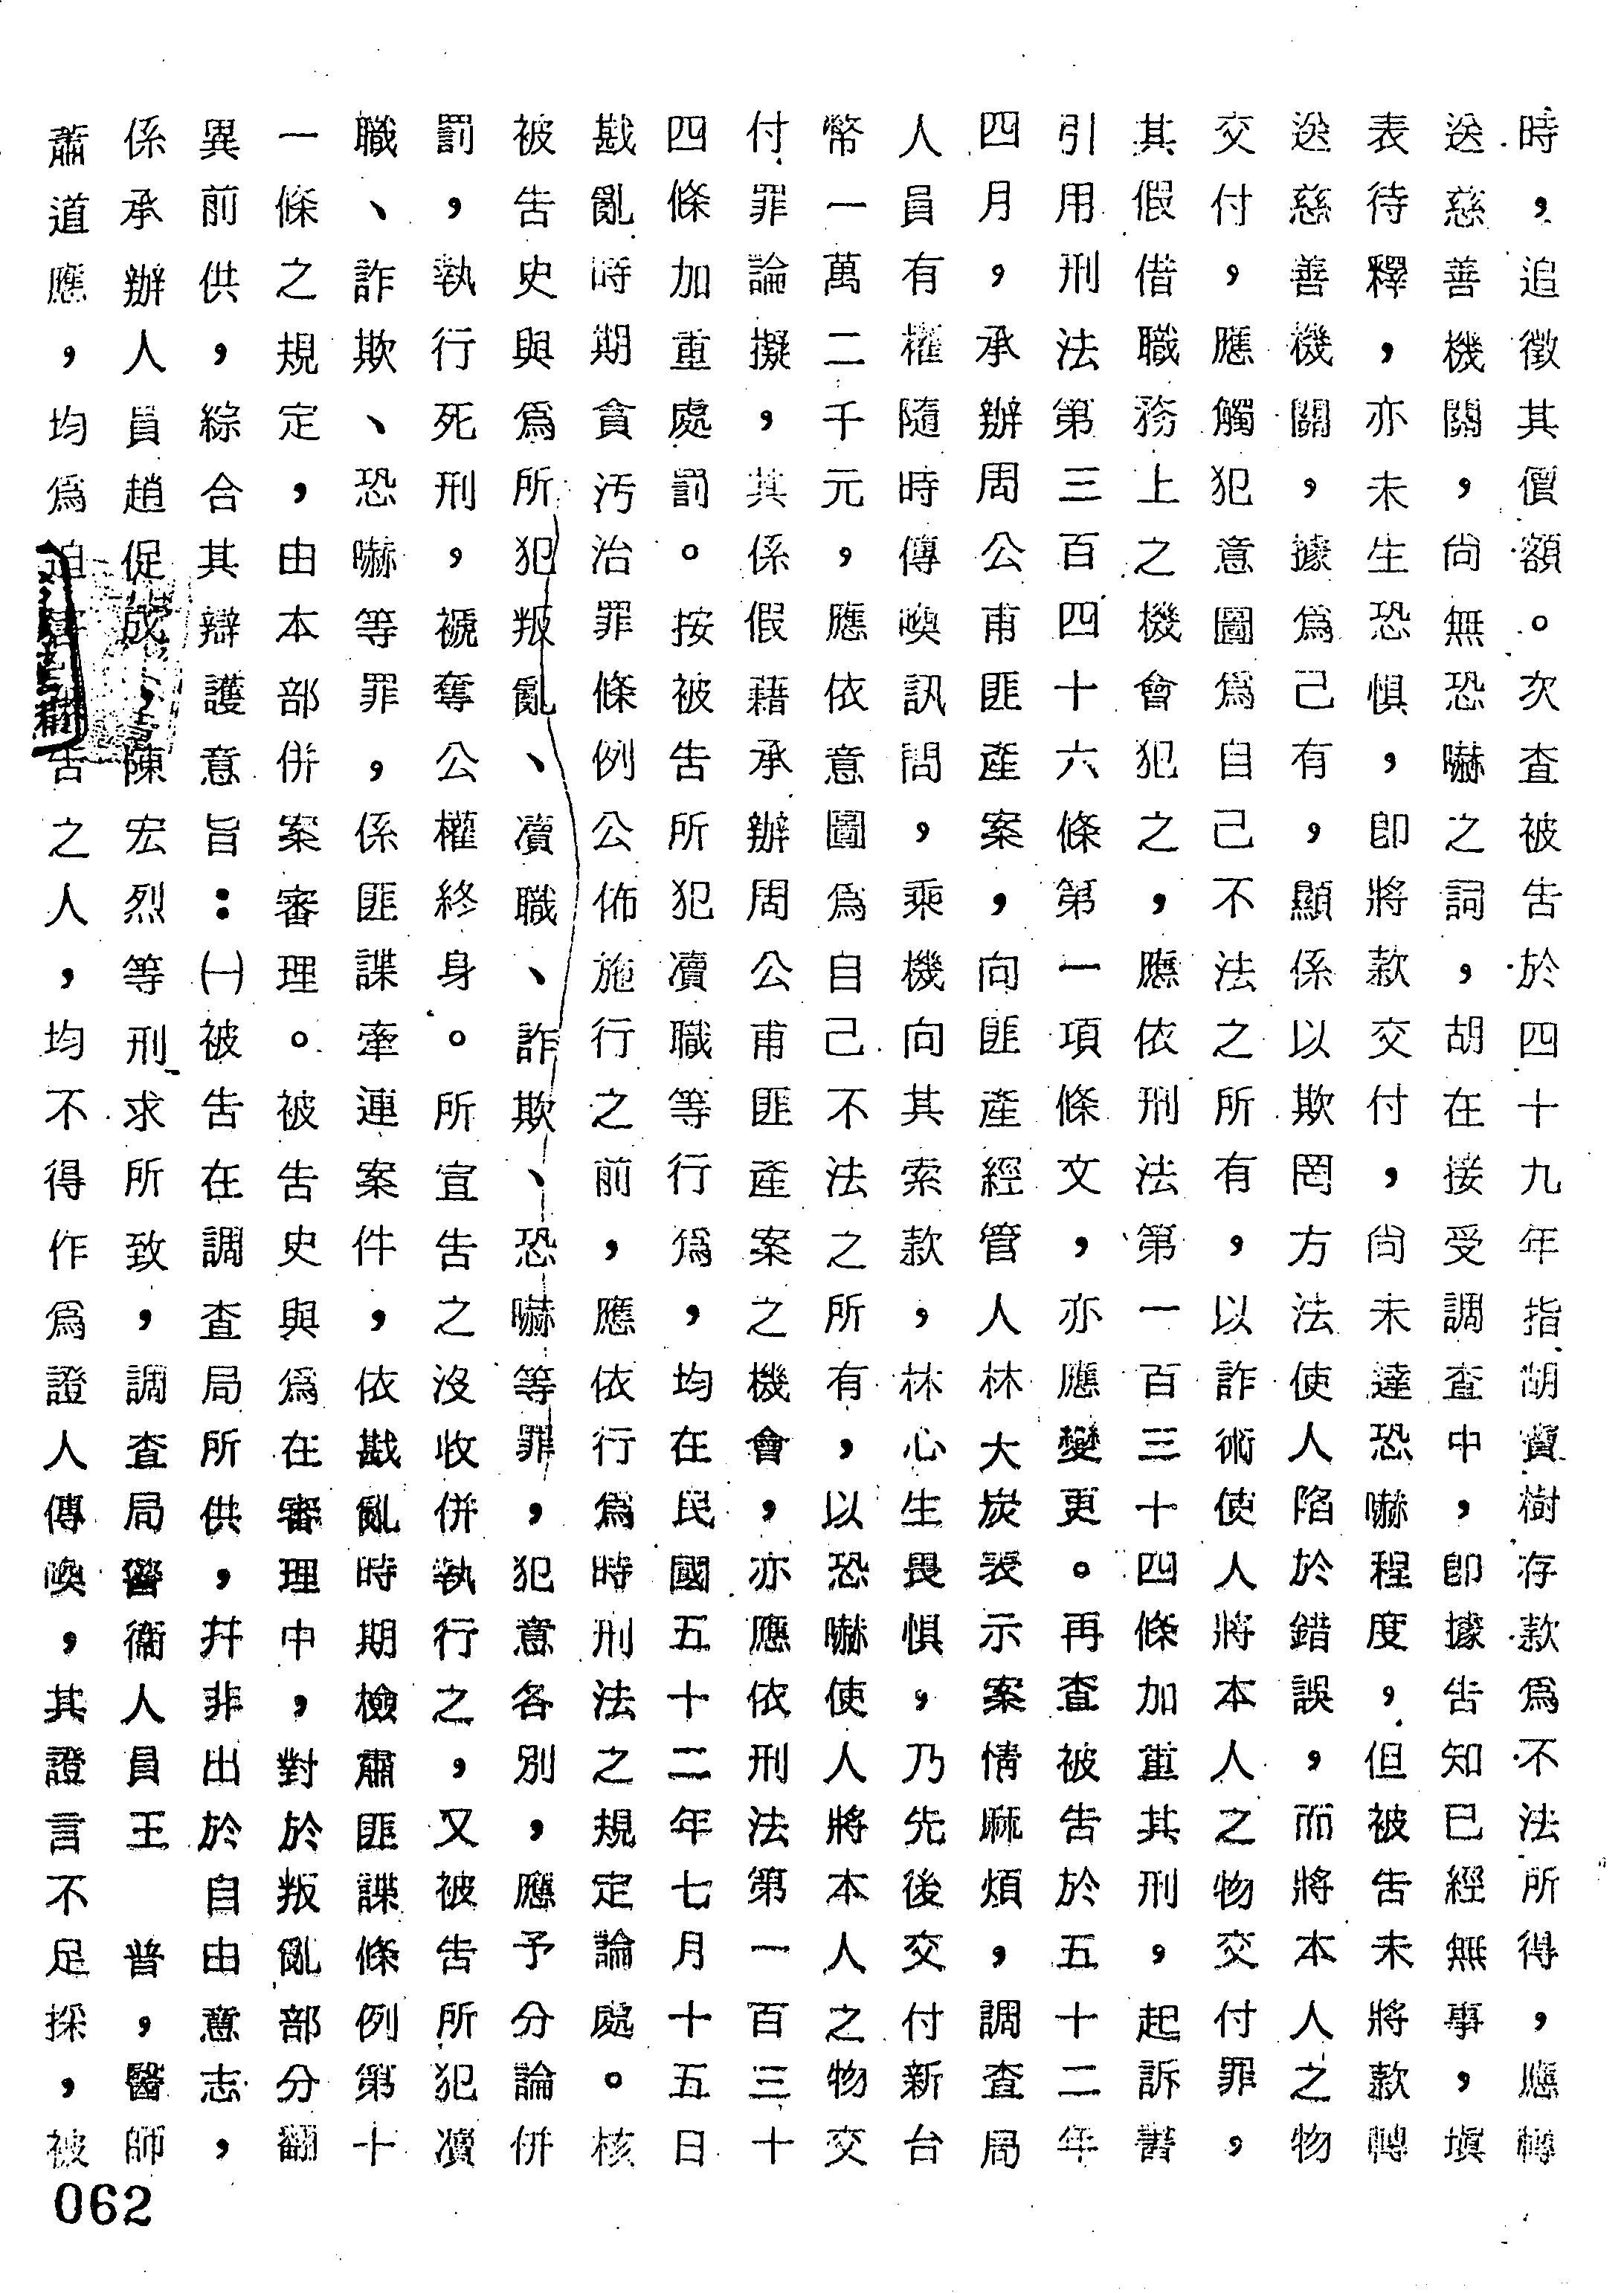 時，追徵其價額。次查被告於四十九年指胡寶樹存款爲不法所得，應轉
送慈善機關，尙無恐嚇之詞，胡在接受調查中，卽據告知已經無事，塡
表待釋，亦未生恐惧，卽將款交付，尙未達恐嚇程度，但被告未將款轉
送慈善機關，據爲己有，顯係以欺罔方法使人陷於錯誤，而將本人之物
交付，應觸犯意圖爲自己不法之所有，以詐術使人將本人之物交付罪，
其假借職務上之機會犯之，應依刑法第一百三十四條加重其刑，起訴書
引用刑法第三百四十六條第一項條文，亦應變更。再查被告於五十二年
四月，承辦周公甫匪產案，向匪產經管人林大炭表示案情麻煩，調查局
人員有權隨時傳喚訊問，乘機向其索款，林心生畏惧，乃先後交付新台
幣一萬二千元，應依意圖爲自己不法之所有，以恐嚇使人將本人之物交
付罪論擬，其係假藉承辦周公甫匪產案之機會，亦應依刑法第一百三十
四條加重處罰。按被告所犯瀆職等行爲，均在民國五十二年七月十五日
戡亂時期貪汚治罪條例公佈施行之前，應依行爲時刑法之規定論處。核
被告史與爲所犯叛亂、瀆職、詐欺、恐嚇等罪，犯意各別，應予分論併
罰，執行死刑，褫奪公權終身。所宣告之沒收併執行之，又被告所犯瀆
職、詐欺、恐嚇等罪，係匪諜牽連案件，依戡亂時期檢肅匪諜條例第十
一條之規定，由本部併案審理。被告史與爲在審理中，對於叛亂部分翻
異前供，綜合其辯護意旨：㈠被告在調查局所供，幷非出於自由意志，
係承辦人員趙促成，陳宏烈等刑求所致，調查局警衞人員王　普，醫師
蕭道應，均爲迫害被告之人，均不得作爲證人傳喚，其證言不足採，被
062